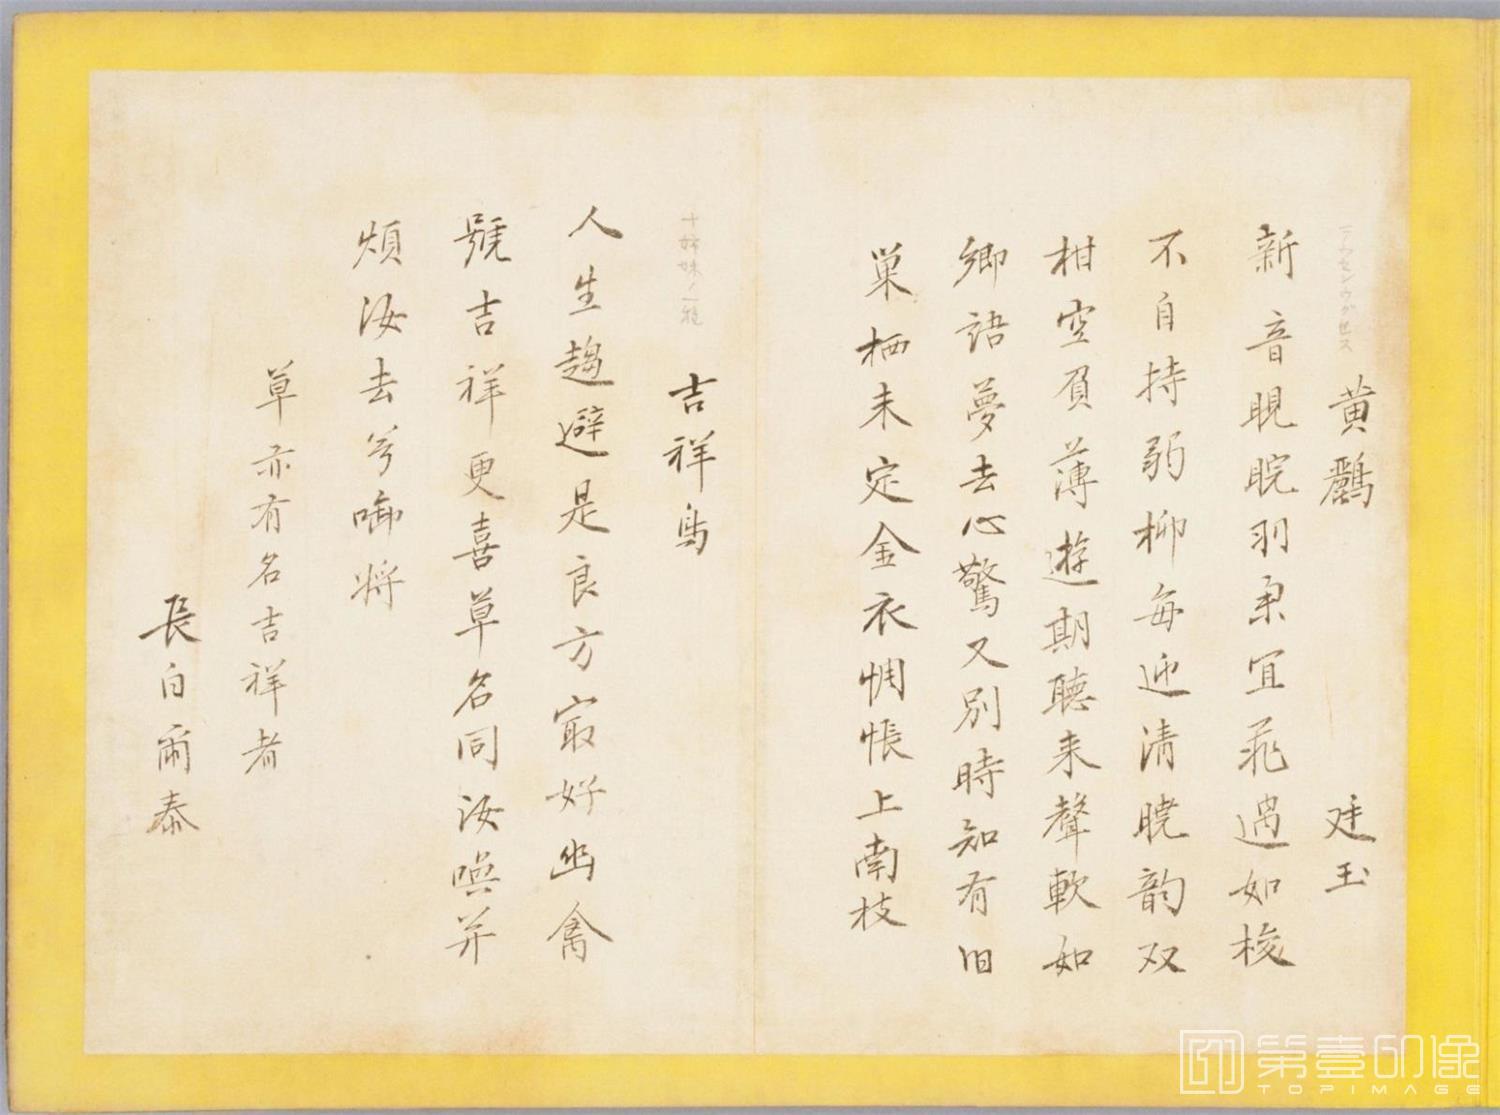 黄鸝　廷玉
新音睍睆羽柔宜飛過如梭
不自持弱柳每迎清曉韵双
柑空負薄遊期聽来聲軟如
鄉語夢去心驚又別時知有旧
巢栖未定金衣惆悵上南枝
十姊妹ノ一種
吉祥鳥
人生趨避是良方寂好幽禽
號吉祥更喜草名同汝喚并
煩汝去兮啣將
草亦有名吉祥者
長白爾泰
第壹印像
TOPIMAGE